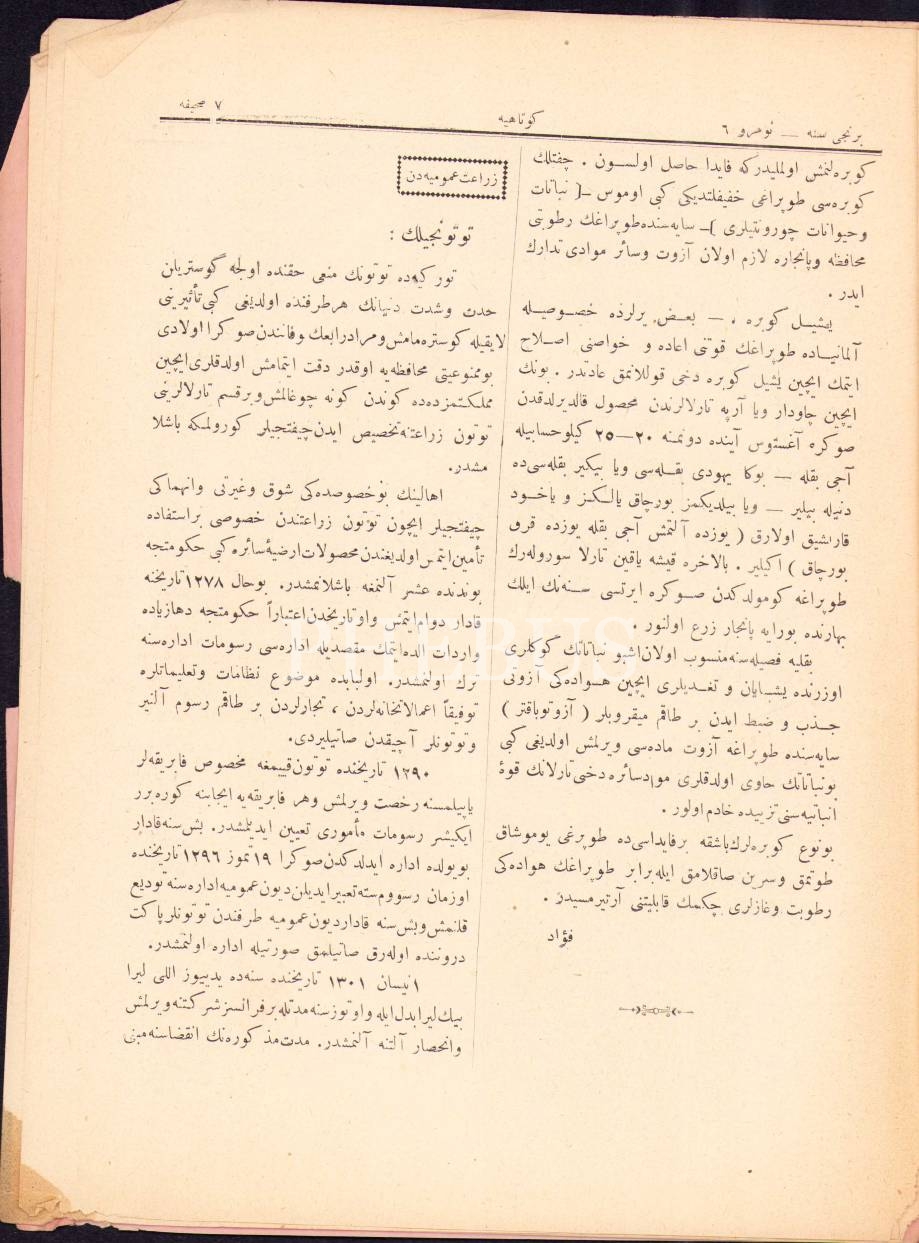 برنجی سنه — نومرو ٦
كوتاهیه
٧ صحیفه
كوبره‌لنمش اولملیدركه فایدا حاصل اولسون . چفتلك
كوبره‌سی طوپراغی خفیفلتدیكی كبی اوموس -[ نباتات
وحیوانات چورونتیلری ]- سایه‌سنده طوپراغك رطوبتی
محافظه وپانجاره لازم اولان آزوت وسائر موادی تدارك
ایدر .
یشیل كوبره . — بعض یرلرده خصوصیله
آلمانیاده طوپراغك قوتنی اعاده و خواصنی اصلاح
ایتمك ایچین یشیل كوبره دخی قوللانمق عادتدر . بونك
ایچین چاودار ویا آرپه تارلالرندن محصول قالدیرلدقدن
صوكره آغستوس آینده دونمنه ٢٠—٢٥ كیلو حسابیله
آجی بقله — بوكا یهودی بقله‌سی ویا بیكیر بقله‌سی ده
دنیله بیلیر — ویا بیلدیكمز بورچاق یالكز و یاخود
قارشیق اولارق ( یوزده آلتمش آجی بقله یوزده قرق
بورچاق ) اكیلیر . بالاخره قیشه یاقین تارلا سوروله‌رك
طوپراغه كومولدكدن صوكره ایرتسی سنه‌نك ایلك
بهارنده بورایه پانجار زرع اولنور .
بقلیه فصیله‌سنه منسوب اولان اشبو نباتاتك كوكلری
اوزرنده یشایان و تغدیلری ایچین هواده‌كی آزوتی
جذب و ضبط ایدن بر طاقم میقروبلر ( آزوتوباقتر )
سایه‌سنده طوپراغه آزوت ماده‌سی ویرلمش اولدیغی كبی
بونباتاتك حاوی اولدقلری مواد سائره دخی تارلانك قوۀ
انباتیه‌سنی تزییده خادم اولور .
بونوع كوبره‌لرك باشقه بر فایداسی ده طوپرغی یوموشاق
طوتمق وسرین صاقلامق ایله برابر طوپراغك هواده‌كی
رطوبت وغازلری چكمك قابلیتنی آرتیرمسیدر .
فؤاد
زراعت عمومیه‌دن
توتونجیلك :
توركیه‌ده توتونك منعی حقنده اولجه گوستریلن
حدت وشدت دنیانك هر طرفنده اولدیغی كبی تأثیرینی
لایقیله كوستره‌مامش ومراد رابعك وفاتندن صوكرا اولادی
بو ممنوعیتی محافظه‌یه اوقدر دقت ایتمامش اولدقلری ایچین
مملكتمزده‌ده كوندن كونه چوغالمش وبرقسم تارلالرینی
توتون زراعتنه تخصیص ایدن چیفتجیلر كورولمكه باشلا
مشدر.
اهالینك بو خصوصده‌كی شوق وغیرتی وانهماكی
چیفتجیلر ایچون توتون زراعتندن خصوصی بر استفاده
تأمین ایتمس اولدیغندن محصولات ارضیۀ سائره كبی حكومتجه
بوندنده عشر آلنمغه باشلانمشدر. بوحال ١٢٧٨ تاریخنه
قادار دوام ایتمش واو تاریخدن اعتباراً حكومتجه دها زیاده
واردات الده ایتمك مقصدیله اداره‌سی رسومات اداره‌سنه
ترك اولنمشدر. اولبابده موضوع نظامات وتعلیماتلره
توفیقاً اعمالاتخانه‌لردن ، تجارلردن بر طاقم رسوم آلنیر
وتوتونلر آچیقدن صاتیلیردی.
١٢٩٠ تاریخنده توتون قییمغه مخصوص فابریقه‌لر
یاپیلمسنه رخصت ویرلمش وهر فابریقه‌یه ایجابنه كوره برر
ایكیشر رسومات مأموری تعیین ایدیلمشدر. بش سنه قادار
بویولده اداره ایدلدكدن صوكرا ١٩ تموز ١٢٩٦ تاریخنده
اوزمان رسوم سته تعبیر ایدیلن دیون عمومیه اداره‌سنه تودیع
قلنمش وبش سنه قادار دیون عمومیه طرفندن توتونلر پاكت
دروننده اوله‌رق صاتیلمق صورتیله اداره اولنمشدر.
١ نیسان ١٣٠١ تاریخنده سنه‌ده یدییوز اللی لیرا
بیك لیرا بدل ایله و اوتوز سنه مدتله بر فرانسز شركتنه ویرلمش
وانحصار آلتنه آلنمشدر. مدت مذكوره‌نك انقضاسنه مبنی